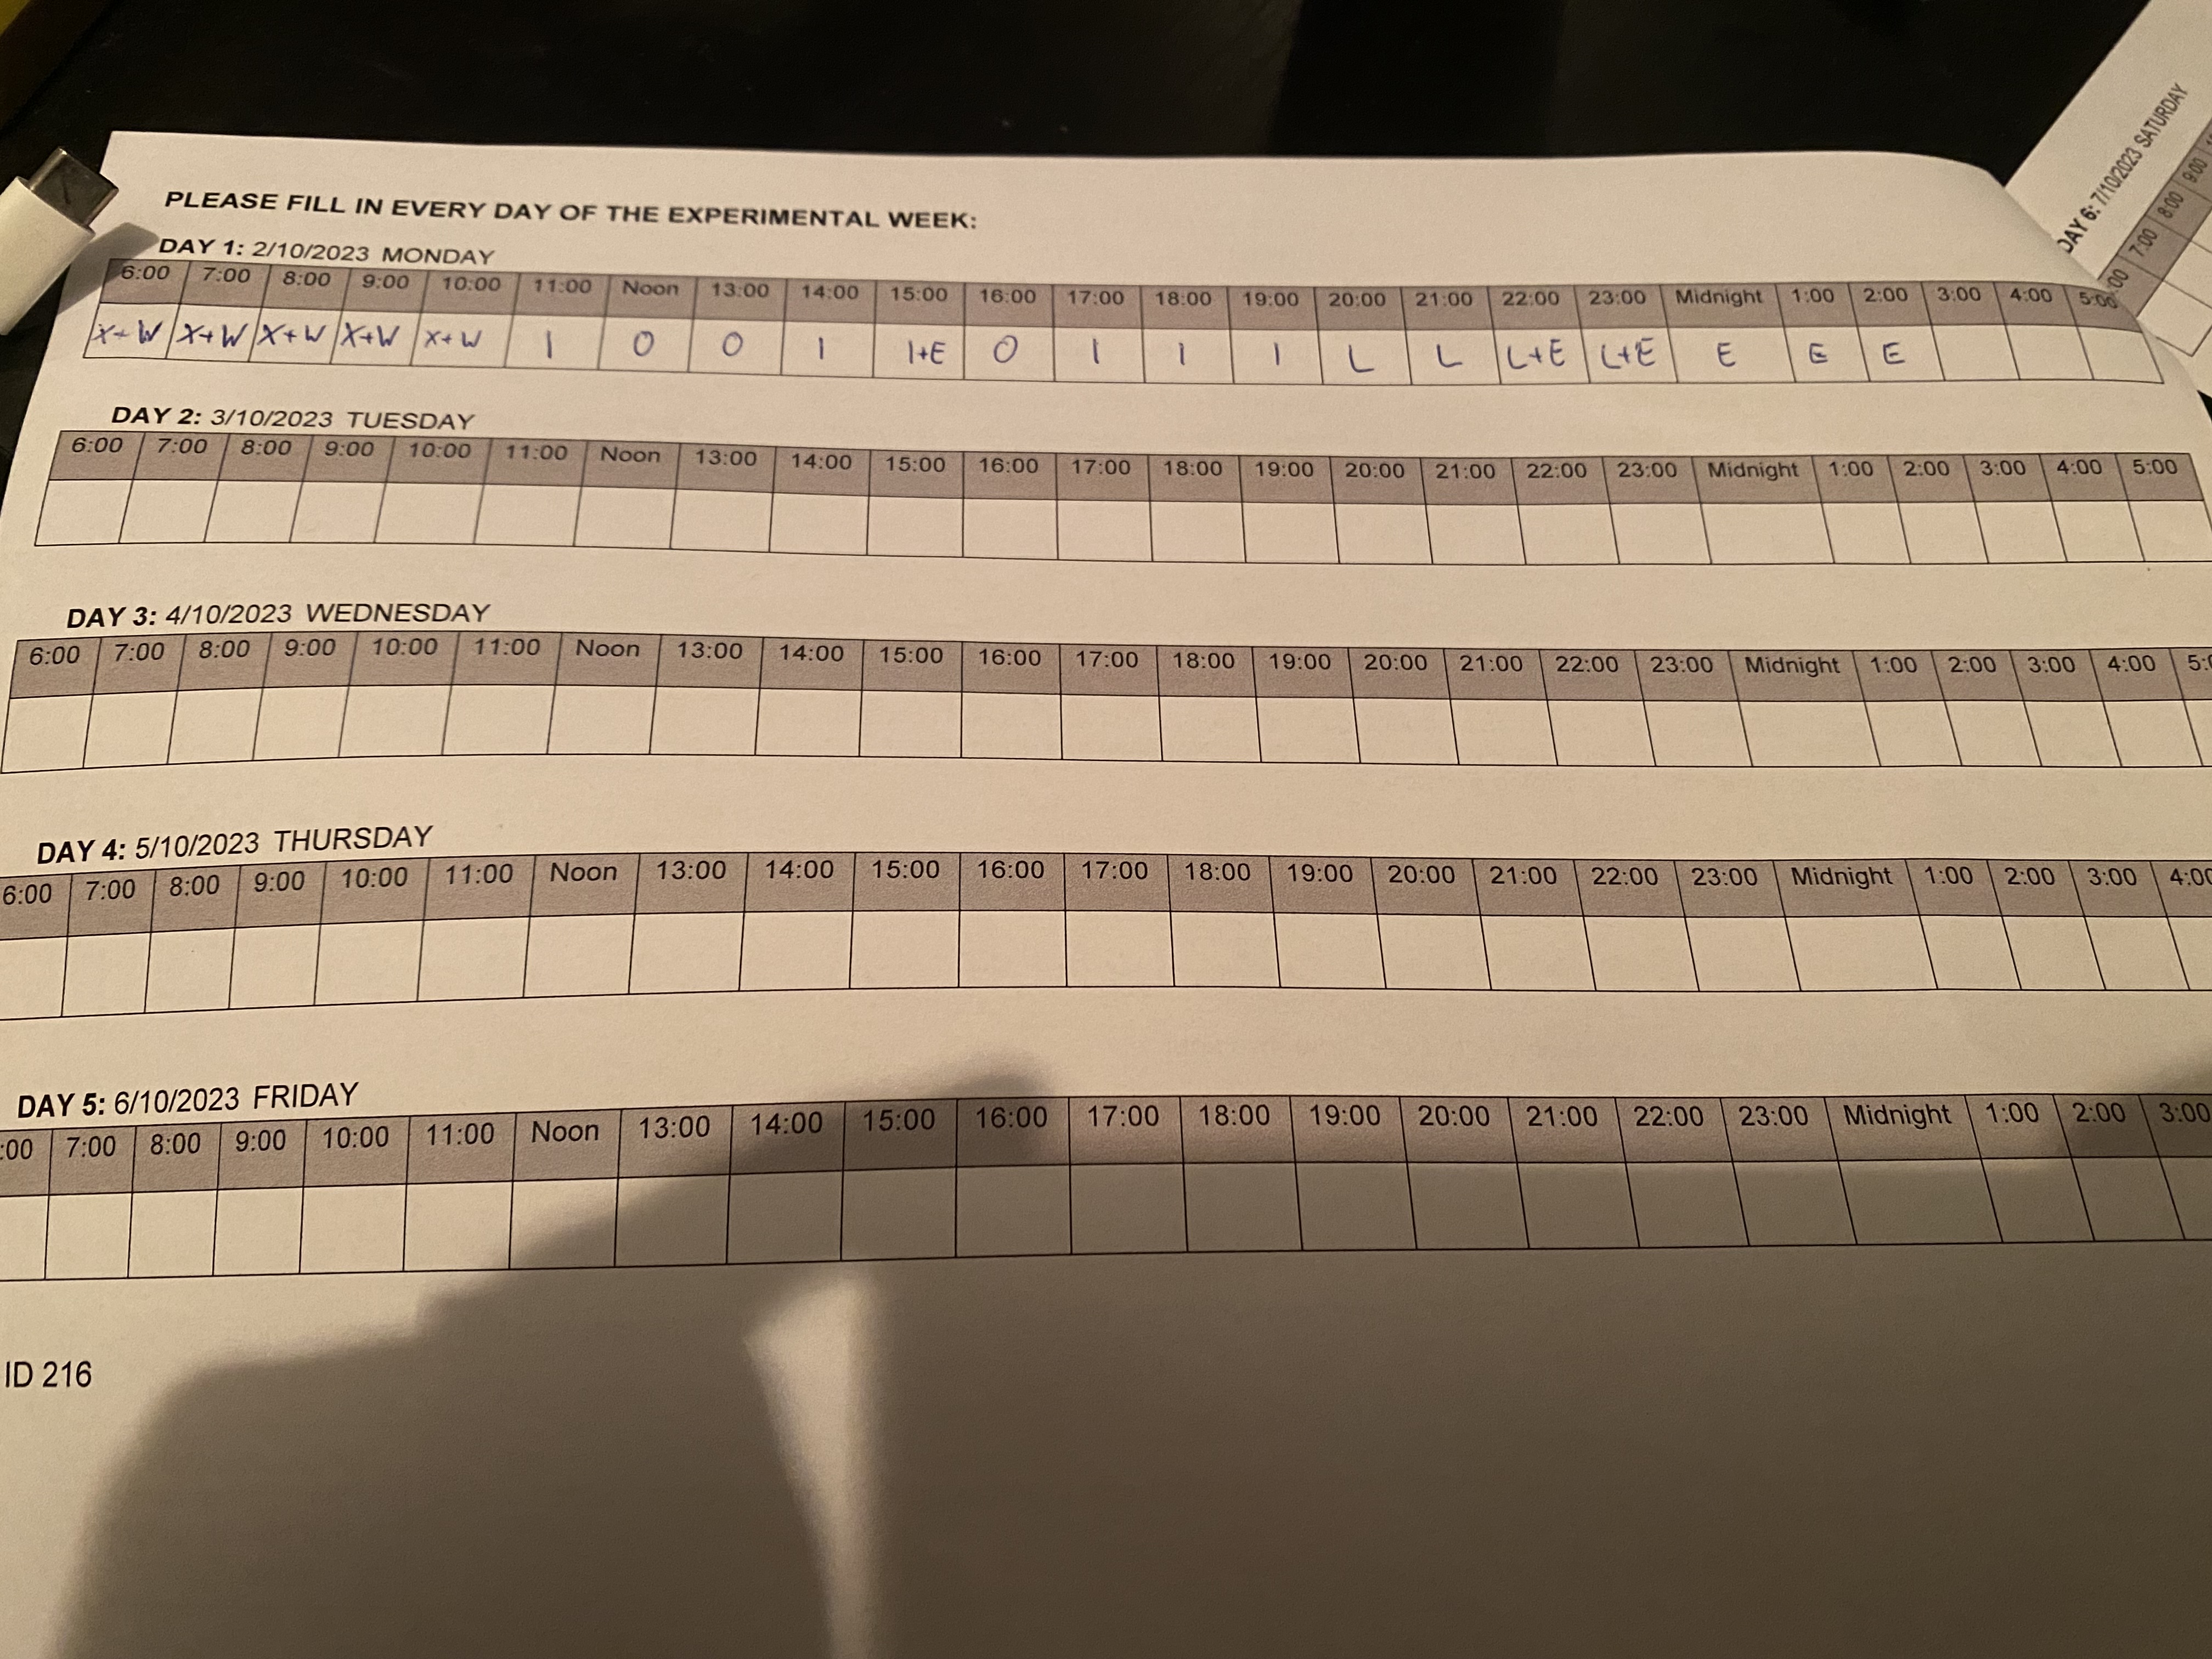 PLEASE FILL IN EVERY DAY OF THE EXPERIMENTAL WEEK:
DAY 1: 2/10/2023 MONDAY
6:00 7:00 8:00 9:00 10:00 11:00 Noon 13:00 14:00 15:00 16:00 17:00 18:00 19:00 20:00 21:00 22:00 23:00 Midnight 1:00 2:00 3:00 4:00 5:00
X+W X+W X+W X+W X+W I O O I I+E O I I I L L L+E L+E E E E
DAY 2: 3/10/2023 TUESDAY
6:00 7:00 8:00 9:00 10:00 11:00 Noon 13:00 14:00 15:00 16:00 17:00 18:00 19:00 20:00 21:00 22:00 23:00 Midnight 1:00 2:00 3:00 4:00 5:00
DAY 3: 4/10/2023 WEDNESDAY
6:00 7:00 8:00 9:00 10:00 11:00 Noon 13:00 14:00 15:00 16:00 17:00 18:00 19:00 20:00 21:00 22:00 23:00 Midnight 1:00 2:00 3:00 4:00
DAY 4: 5/10/2023 THURSDAY
6:00 7:00 8:00 9:00 10:00 11:00 Noon 13:00 14:00 15:00 16:00 17:00 18:00 19:00 20:00 21:00 22:00 23:00 Midnight 1:00 2:00 3:00
DAY 5: 6/10/2023 FRIDAY
:00 7:00 8:00 9:00 10:00 11:00 Noon 13:00 14:00 15:00 16:00 17:00 18:00 19:00 20:00 21:00 22:00 23:00 Midnight 1:00 2:00 3:00
ID 216
DAY 6: 7/10/2023 SATURDAY
:00 7:00 8:00 9:00